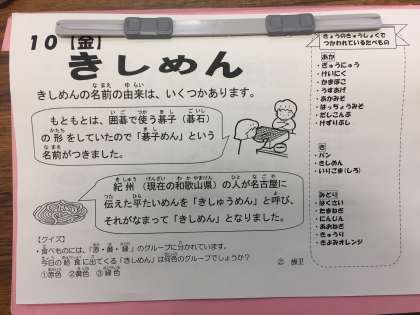 10【金】
きしめん
きしめんの名前の由来は、いくつかあります。
もともとは、囲碁で使う碁子（碁石）
の形をしていたので「碁子めん」という
名前がつきました。
紀州（現在の和歌山県）の人が名古屋に
伝えた平たいめんを「きしゅうめん」と呼び、
それがなまって「きしめん」となりました。
【クイズ】
・食べものには、「赤・黄・緑」のグループに分かれています。
今日の給食に出てくる「きしめん」は何色のグループでしょうか？
①赤色 ②黄色 ③緑色
きょうのきゅうしょくで
つかわれているたべもの
あか
・ぎゅうにゅう
・けいにく
・かまぼこ
・うすあげ
・あかみそ
・はっちょうみそ
・だしこんぶ
・けずりぶし
き
・パン
・きしめん
・いりごま（しろ）
みどり
・はくさい
・たまねぎ
・にんじん
・あおねぎ
・きゅうり
・きよみオレンジ